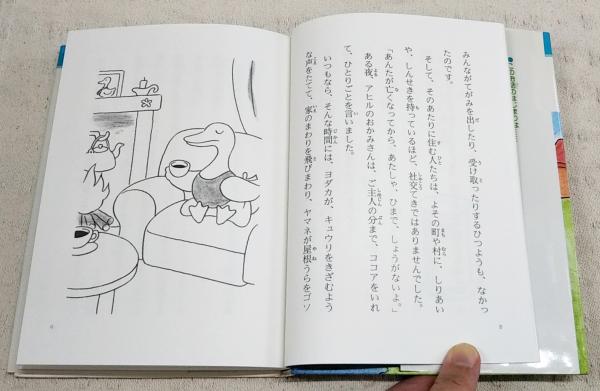 みんながてがみを出したり、受け取ったりするひつようも、なかっ
たのです。
そして、そのあたりに住む人たちは、よその町や村に、しりあい
や、しんせきを持っているほど、社交てきではありませんでした。
「あんたが亡くなってから、あたしゃ、ひまで、しょうがないよ。」
ある夜、アヒルのおかみさんは、ご主人の分まで、ココアをいれ
て、ひとりごとを言いました。
いつもなら、そんな時間には、ヨダカが、キュウリをきざむよう
な声をたてて、家のまわりを飛びまわり、ヤマネが屋根うらをゴソ